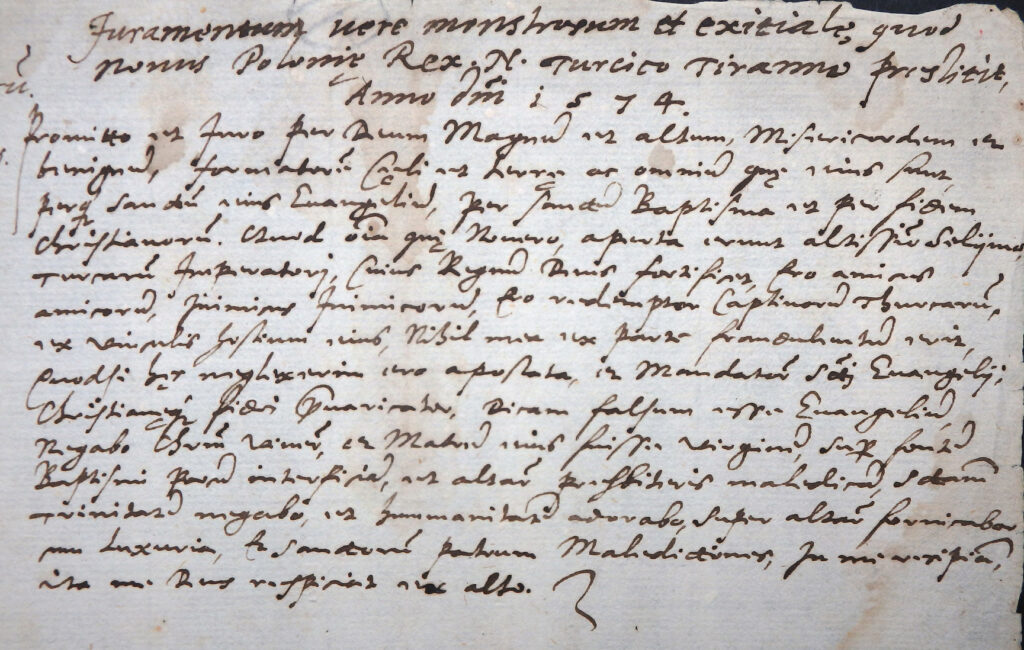 Juramentum vere monstrosum et exitialę, quod
novus Polonię Rex. N. Turcico Tiranno prestitit,
Anno dni 1574.
Promitto et Juro per Deum Magnū et altum, Misericordem et
benignū, formatorē Cęli et terrę ac omniū quę eius sunt,
perq₃ sanctū eius Evangeliū, per sanctū Baptisma et per fidem
Christianorū. Quod oīa quę Novero, aperta erunt altissīo Selijmo
Turcarū Imperatorj, Cuius Regnū Deus fortificet, Ero amicus
amicorū, Inimicus Inimicorū, Ero redemptor Captivorū Thurcarū,
ex vinculis hostium eius, Nihil mea ex parte fraudulentū erit,
Quodsi hęc neglexerim ero apostata, et Mandatorū Scti Evangelij,
Christianęq₃ fidei pvaricator, Dicam falsum esse Evangeliū,
Negabo Chrm vivere, et Matrē eius fuisse virginē, sup fontē
Baptismi porcū interficiā, et altarū presbiteris maledicā, Sctam
Trinitatē negabo, et humanitatē adorabo, super altare fornicabor
cum luxuria, Et Sanctorū patrum Maledictiones, In me recipiā,
ita me Deus respiciat ex alto.